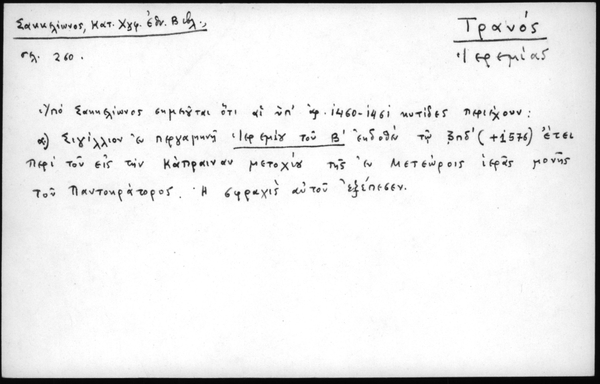 Σακκελίωνος, Κατ. Χγφ. Ἐθν. Βιβλ.,
σελ. 260.
Τρανός
Ἱερεμίας
Ὑπό Σακκελίωνος σημειοῦται ὅτι αἱ ὑπ' ἀρ. 1460-1461 κυτίδες περιέχουν:
α) Σιγίλλιον ἐν περγαμηνῇ Ἱερεμίου τοῦ Β' ἐκδοθέν τῷ ζπδ' (+1576) ἔτει
περί τοῦ εἰς τήν Κάπραιναν μετοχίου τῆς ἐν Μετεώροις ἱερᾶς μονῆς
τοῦ Παντοκράτορος. Ἡ σφραγίς αὐτοῦ ἐξέπεσεν.